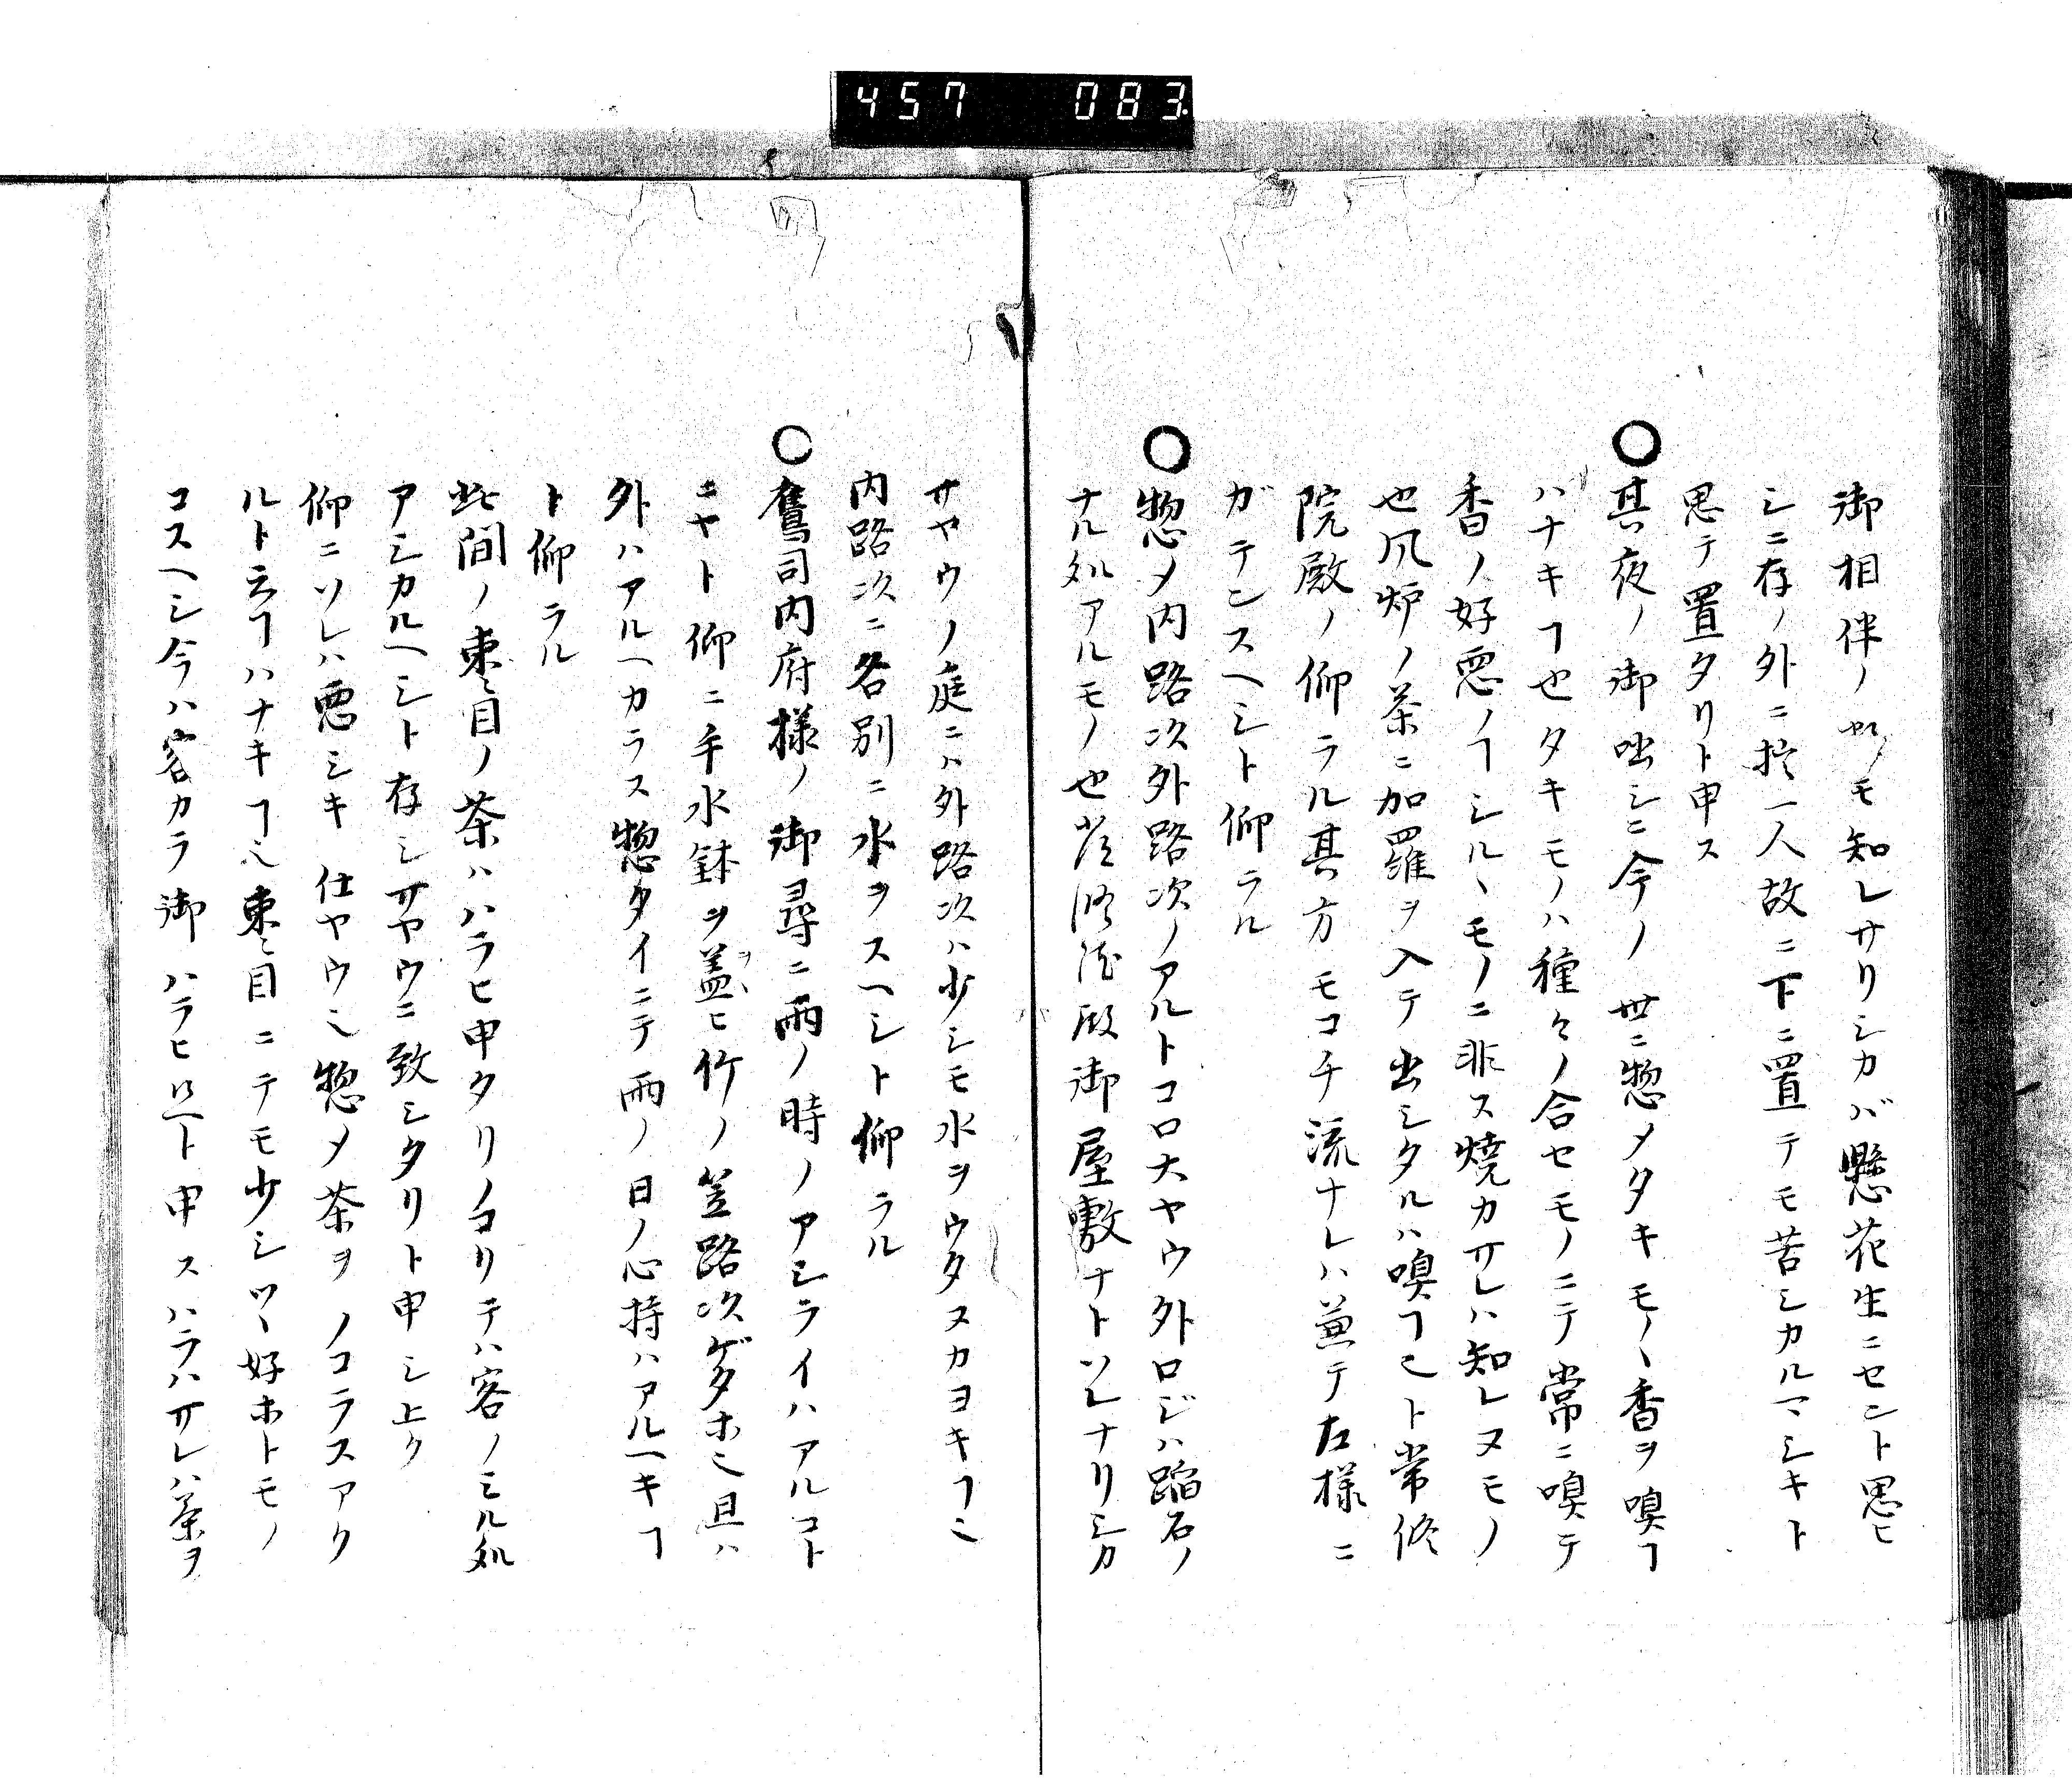 457 083
御相伴ノヤウモ知レサリシカバ懸花生ニセント思ヒ
シニ存ノ外ニ拙一人故ニ下ニ置テモ苦シカルマシキト
思テ置タリト申ス
○其夜ノ御咄シニ今ノ世ニ惣メタキモノヽ香ヲ嗅ヿ
ハナキヿ也タキモノハ種々ノ合セモノニテ常ニ嗅テ
香ノ好悪ノヿシルヽモノニ非ス焼カサレハ知レヌモノ
也風炉ノ茶ニ加羅ヲ入テ出シタルハ嗅ヿ也ト常修
院殿ノ仰ラル其方モコチ流ナレハ兼テ左様ニ
ガテンスヘシト仰ラル
○惣メ内路次外路次ノアルトコロ大ヤウ外ロジハ蹈石ノ
ナル処アルモノ也 殿御屋敷ナトソレナリシカ
サヤウノ庭ニハ外路次ハ少シモ水ヲウタヌカヨキヿ也
内路次ニ各別ニ水ヲスヘシト仰ラル
○鷹司内府様ノ御尋ニ雨ノ時ノアシライハアルコト
ニヤト仰ニ手水鉢ヲ蓋ヒ竹ノ笠路次ゲタホ也且ハ
外ハアルヘカラス惣タイニテ雨ノ日ノ心持ハアルヘキヿ
ト仰ラル
此間ノ東目ノ茶ハハラヒ申タリノコリテハ客ノミル処
アシカルヘシト存シサヤウニ致シタリト申シ上ク
仰ニソレハ悪シキ仕ヤウ也惣メ茶ヲノコラスアク
ルト云ヿハナキヿ也東目ニテモ少シツヽ好ホトモノ
コスヘシ今ハ客カラ御ハラヒ ト申スハラハサレハ茶ヲ